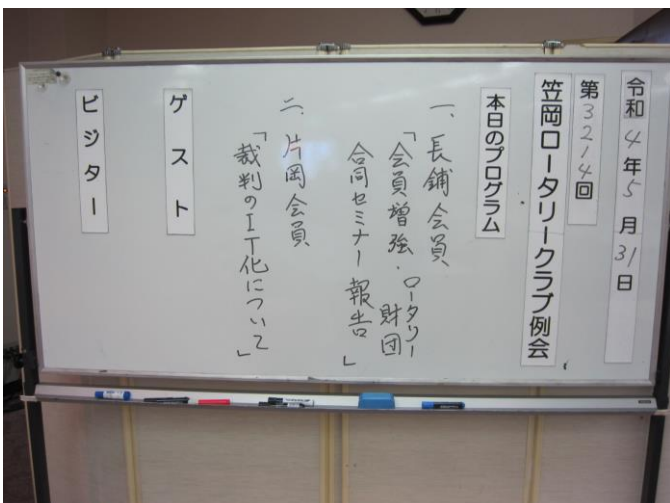 令和4年5月31日
第3214回
笠岡ロータリークラブ例会
本日のプログラム
一、長鋪会員
「会員増強・ロータリー財団
合同セミナー報告」
二、片岡会員
「裁判のIT化について」
ゲスト
ビジター